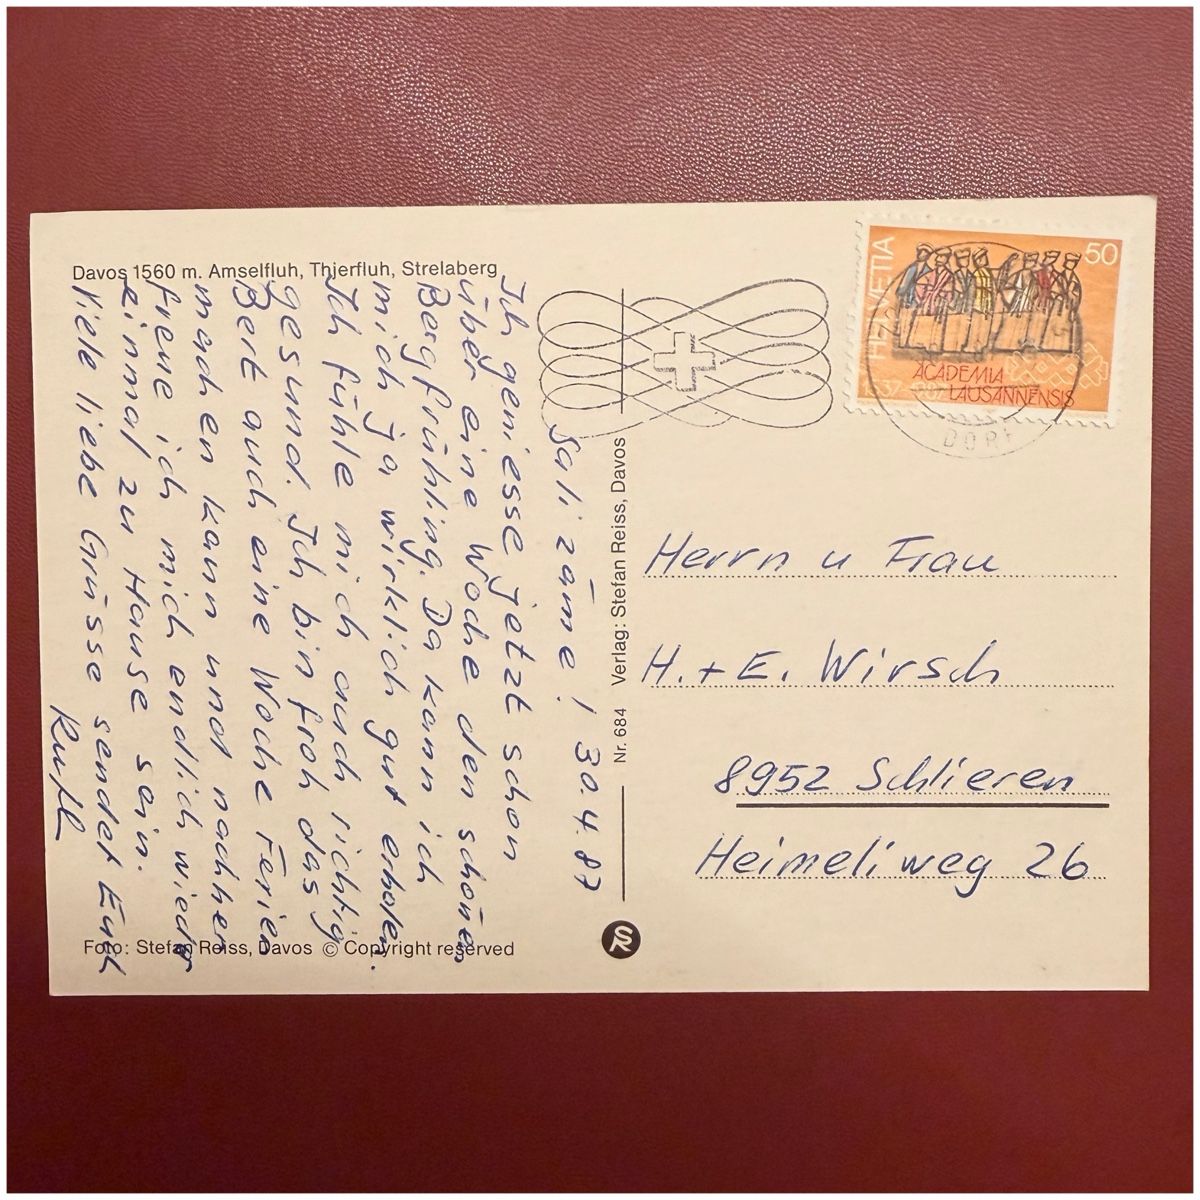 Davos 1560 m. Amselfluh, Thierfluh, Strelaberg
Sali zäme! 30.4.87
Ich geniesse jetzt schon
über eine Woche den schönen
Bergfrühling. Da kann ich
mich ja wirklich gut erholen.
Ich fühle mich auch richtig
gesund. Ich bin froh das
Bert auch eine Woche Ferien
machen kann und nachher
freue ich mich endlich wieder
einmal zu Hause sein.
Viele liebe Grüsse sendet Euch
Foto: Stefan Reiss, Davos © Copyright reserved
Nr. 684 Verlag: Stefan Reiss, Davos
SR
HELVETIA
50
ACADEMIA
LAUSANNENSIS
DORF
Herrn u Frau
H. + E. Wirsch
8952 Schlieren
Heimeliweg 26